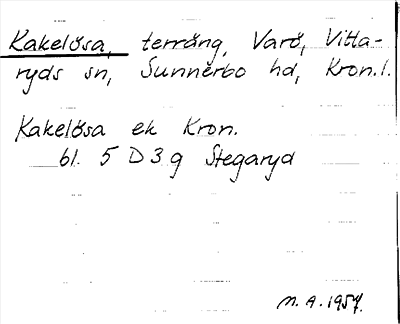 Kakelösa, terräng, Varö, Vitta-
ryds sn, Sunnerbo hd, Kron.l.
Kakelösa ek Kron.
bl. 5 D 3 g Stegaryd
M.A. 1957.